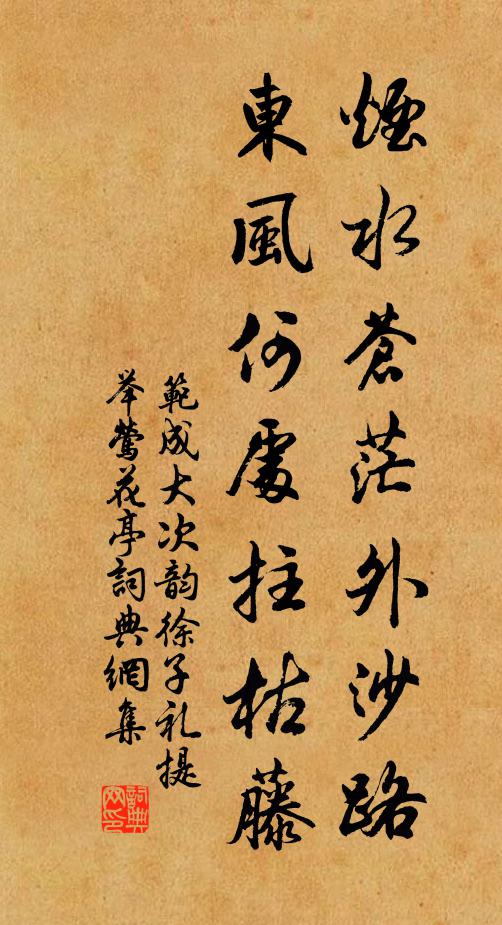 煙水蒼茫外沙路
東風何處拄枯藤
範成大次韵徐子礼提
举鶯花亭詞典網集
詞典網印